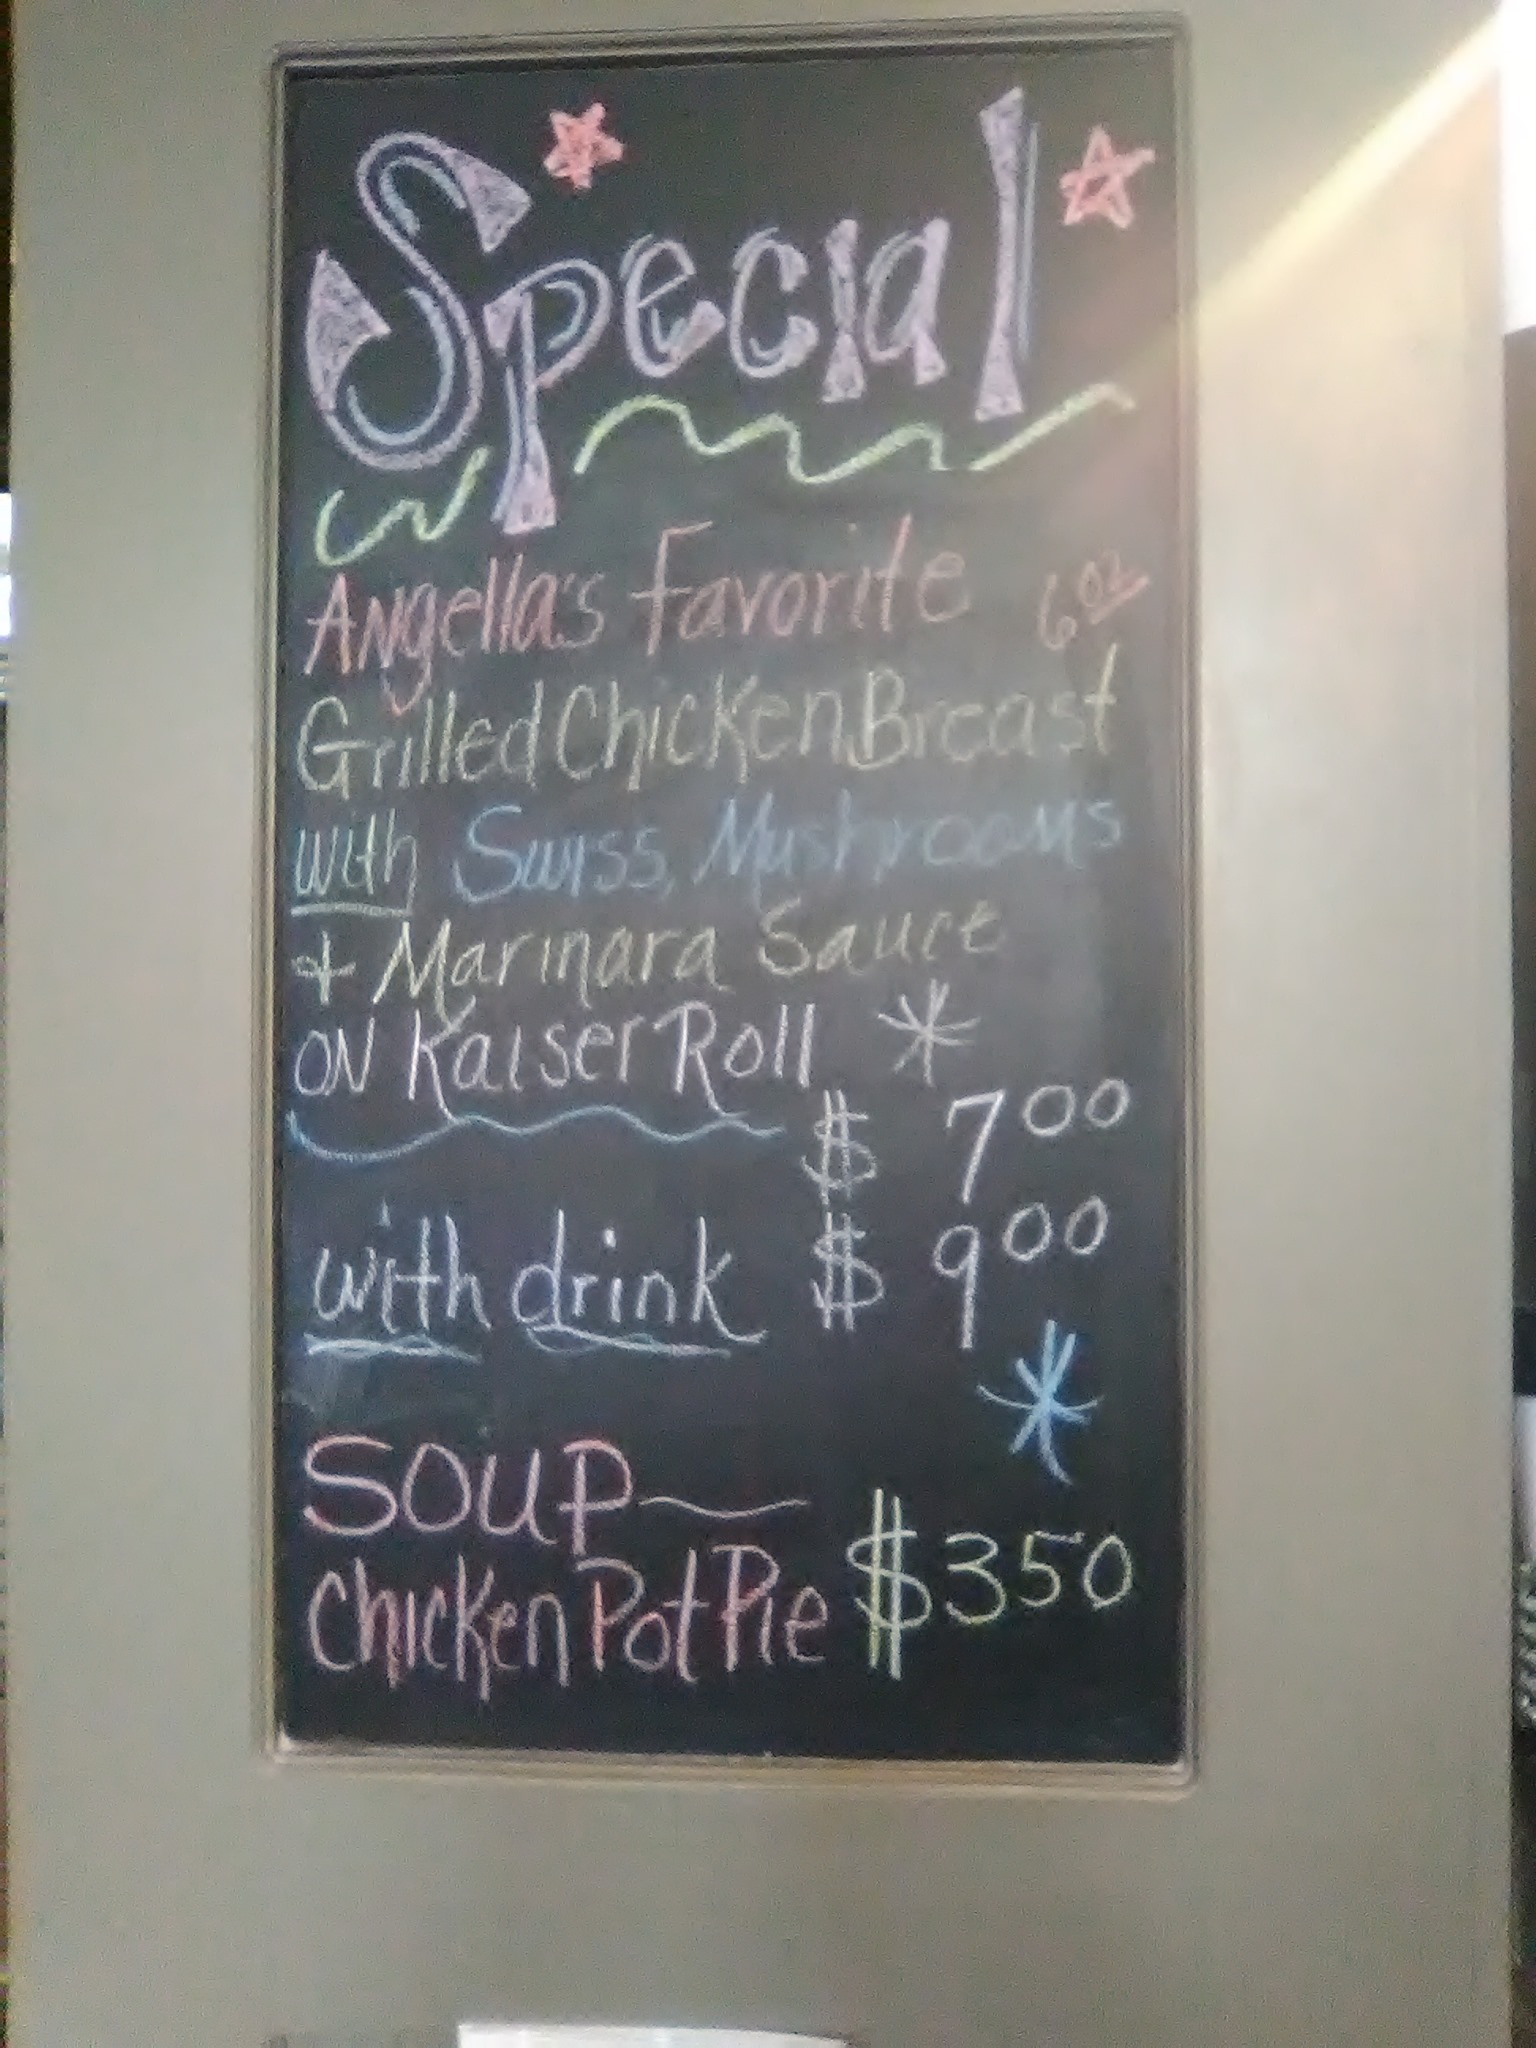 Special
Angella's Favorite 6oz
Grilled Chicken Breast
with Swiss, Mushrooms
+ Marinara Sauce
ON Kaiser Roll *
$ 7 00
with drink $ 9 00
*
SOUP ~
Chicken Pot Pie $350